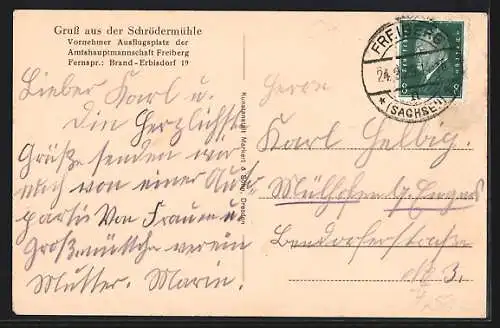 Gruß aus der Schrödermühle
Vornehmer Ausflugsplatz der
Amtshauptmannschaft Freiberg
Fernspr.: Brand-Erbisdorf 19
Lieber Karl u.
Die Herzlichste
Grüße senden wir
noch von einer Aut
partie Von Frauen u
Großmüttche verein
Mutter. Marin.
Kunstanstalt Markert & Sohn, Dresden
FREIBERG
24.
* (SACHSEN)
8 8
Herrn
Karl Helbig.
Mülhofen b/Engers
Bendorferstrasse
No 3.